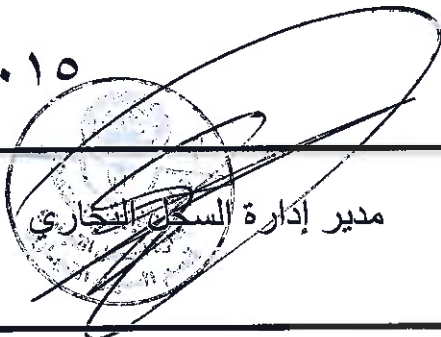 ٠١٥
مدير إدارة السجل التجاري